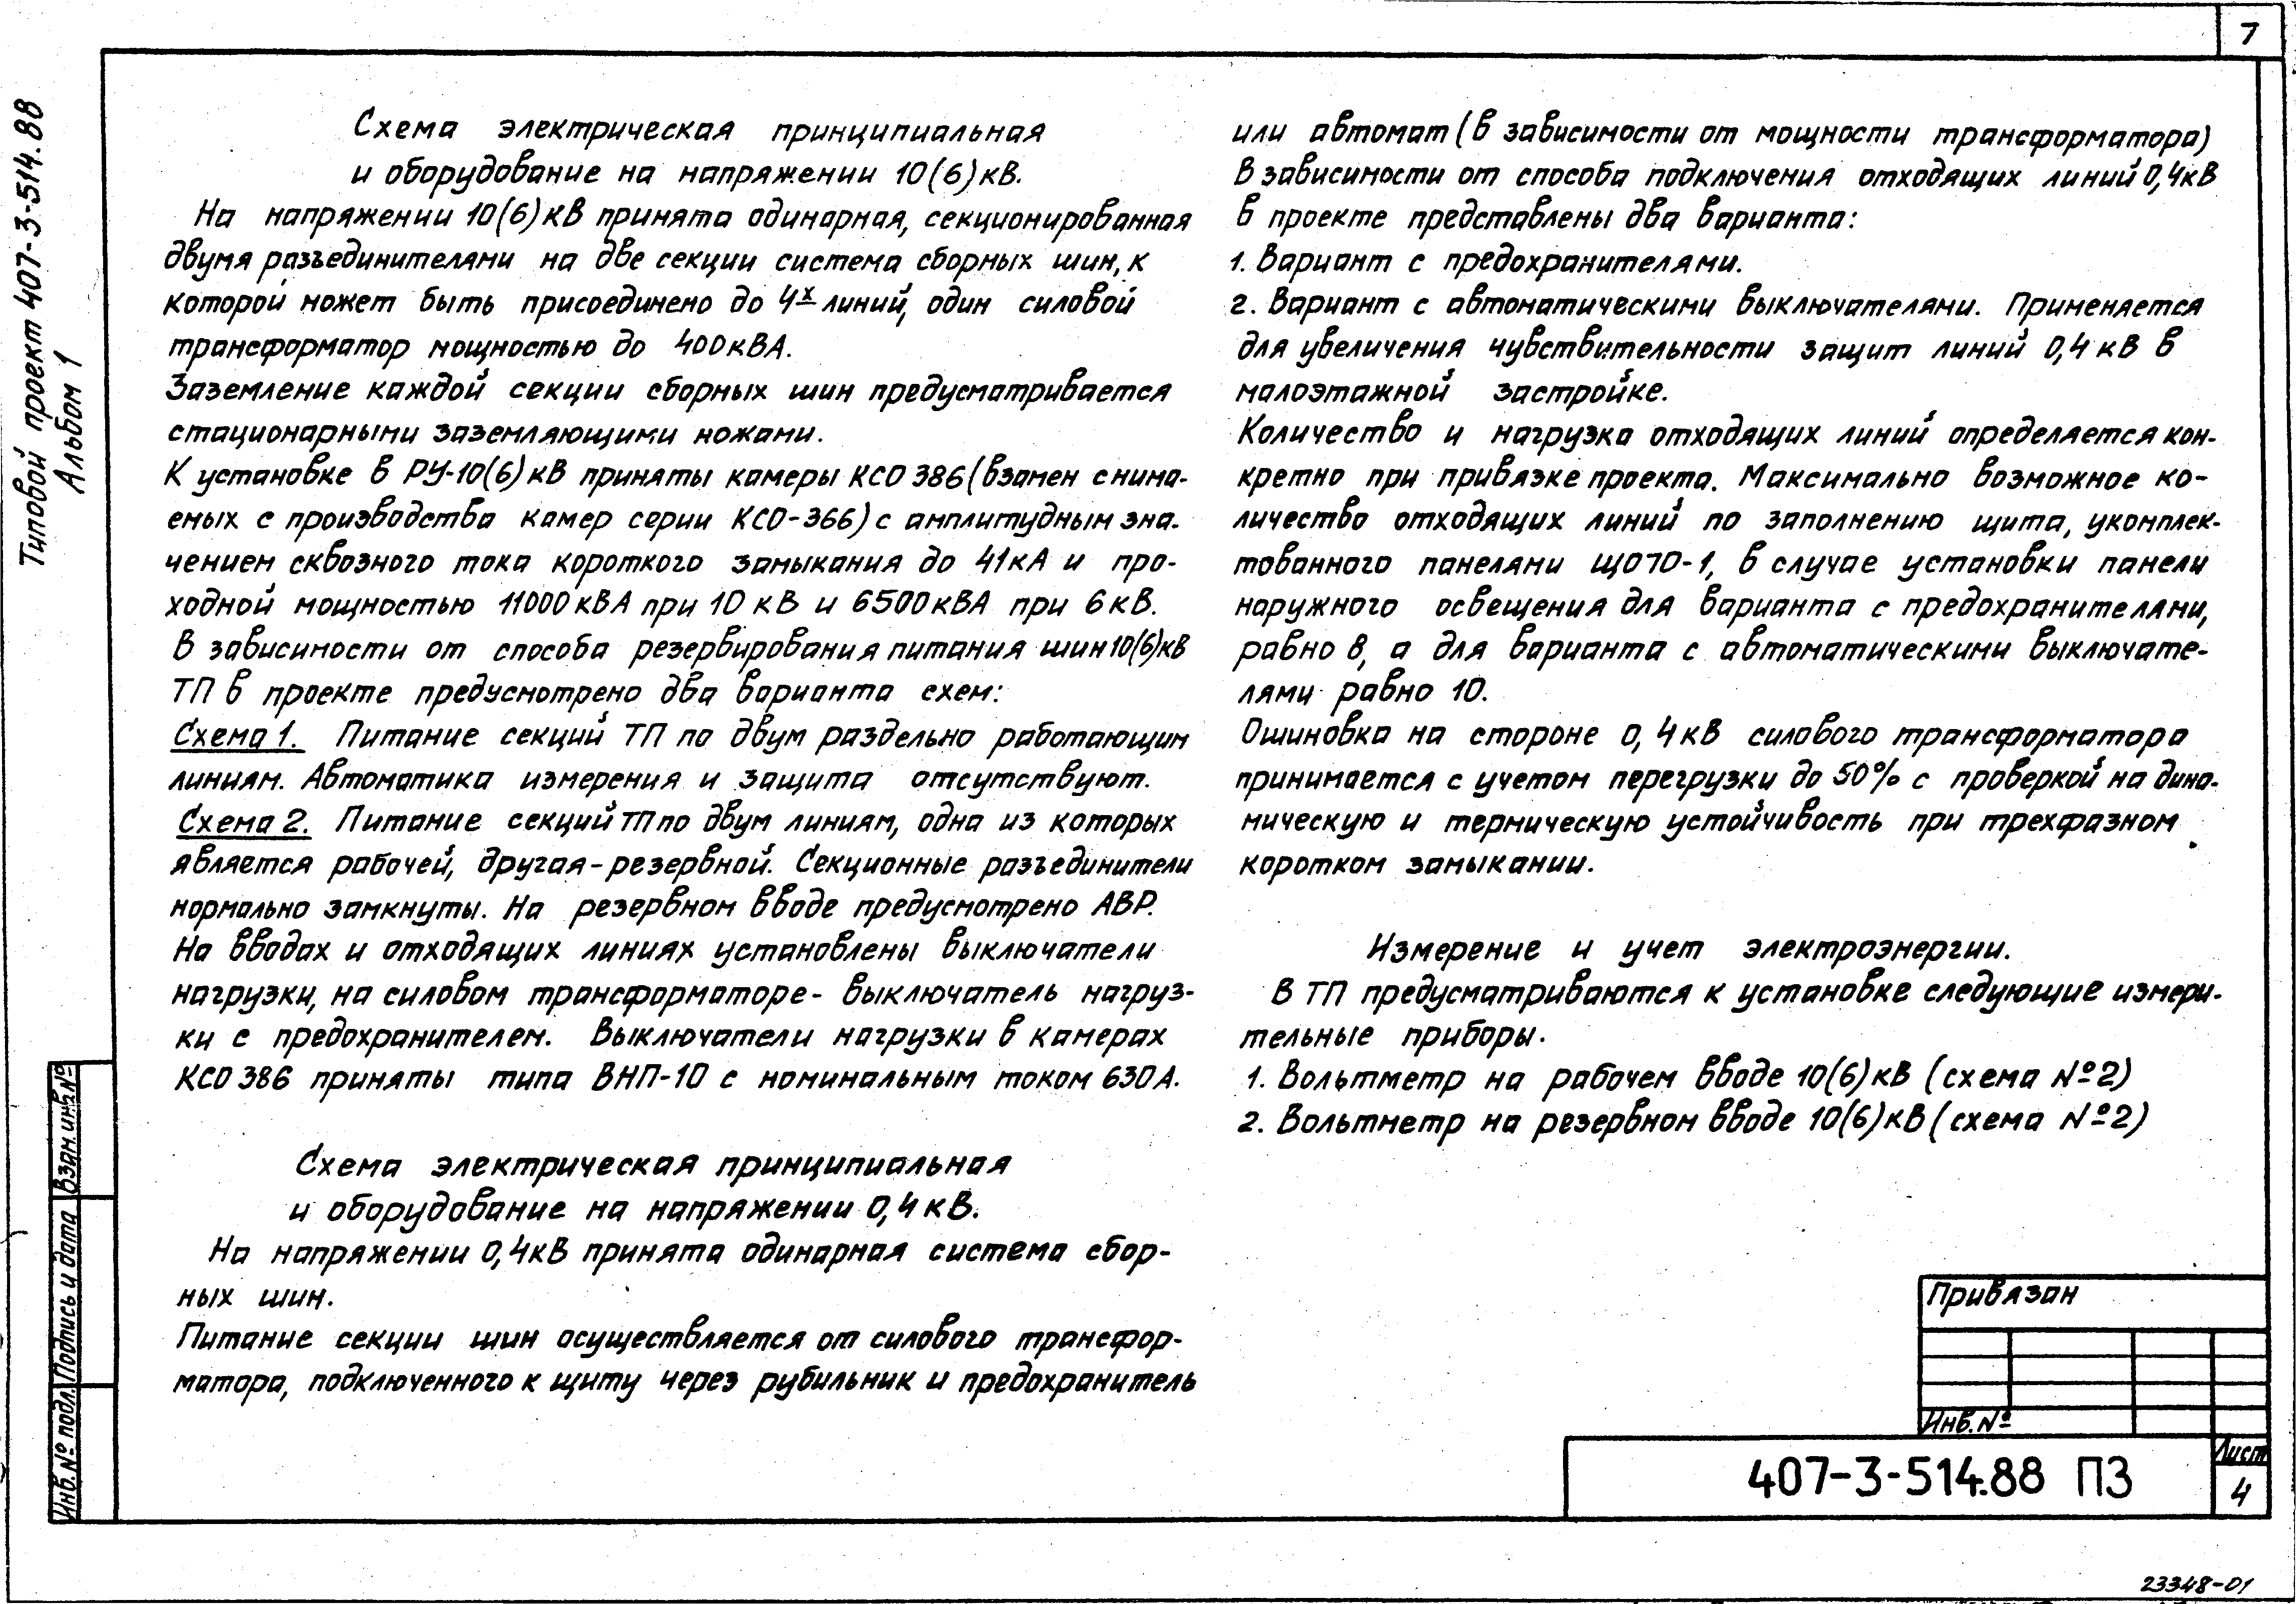 7
Типовой проект 407-3-514.88
Альбом 1
Схема электрическая принципиальная
и оборудование на напряжении 10(6)кВ.
На напряжении 10(6)кВ принята одинарная, секционированная
двумя разъединителями на две секции система сборных шин, к
которой может быть присоединено до 4х линий, один силовой
трансформатор мощностью до 400кВА.
Заземление каждой секции сборных шин предусматривается
стационарными заземляющими ножами.
К установке в РУ-10(6)кВ приняты камеры КСО 386 (взамен снима-
емых с производства камер серии КСО-366) с амплитудным зна-
чением сквозного тока короткого замыкания до 41кА и про-
ходной мощностью 11000кВА при 10 кВ и 6500кВА при 6кВ.
В зависимости от способа резервирования питания шин 10(6)кВ
ТП в проекте предусмотрено два варианта схем:
Схема 1. Питание секций ТП по двум раздельно работающим
линиям. Автоматика измерения и защита отсутствуют.
Схема 2. Питание секций ТП по двум линиям, одна из которых
является рабочей, другая - резервной. Секционные разъединители
нормально замкнуты. На резервном вводе предусмотрено АВР.
На вводах и отходящих линиях установлены выключатели
нагрузки, на силовом трансформаторе - выключатель нагруз-
ки с предохранителем. Выключатели нагрузки в камерах
КСО 386 приняты типа ВНП-10 с номинальным током 630А.
Схема электрическая принципиальная
и оборудование на напряжении 0,4кВ.
На напряжении 0,4кВ принята одинарная система сбор-
ных шин.
Питание секции шин осуществляется от силового трансфор-
матора, подключенного к щиту через рубильник и предохранитель
или автомат (в зависимости от мощности трансформатора)
В зависимости от способа подключения отходящих линий 0,4кВ
в проекте представлены два варианта:
1. Вариант с предохранителями.
2. Вариант с автоматическими выключателями. Применяется
для увеличения чувствительности защит линий 0,4 кВ в
малоэтажной застройке.
Количество и нагрузка отходящих линий определяется кон-
кретно при привязке проекта. Максимально возможное ко-
личество отходящих линий по заполнению щита, укомплек-
тованного панелями ЩО70-1, в случае установки панели
наружного освещения для варианта с предохранителями,
равно 8, а для варианта с автоматическими выключате-
лями равно 10.
Ошиновка на стороне 0,4кВ силового трансформатора
принимается с учетом перегрузки до 50% с проверкой на дина-
мическую и термическую устойчивость при трехфазном
коротком замыкании.
Измерение и учет электроэнергии.
В ТП предусматриваются к установке следующие измери-
тельные приборы.
1. Вольтметр на рабочем вводе 10(6)кВ (схема №2)
2. Вольтметр на резервном вводе 10(6)кВ (схема №2)
Взам. инв. №
Подпись и дата
Инв. № подл.
Привязан
Инв. №
407-3-514.88 ПЗ
Лист
4
23348-01